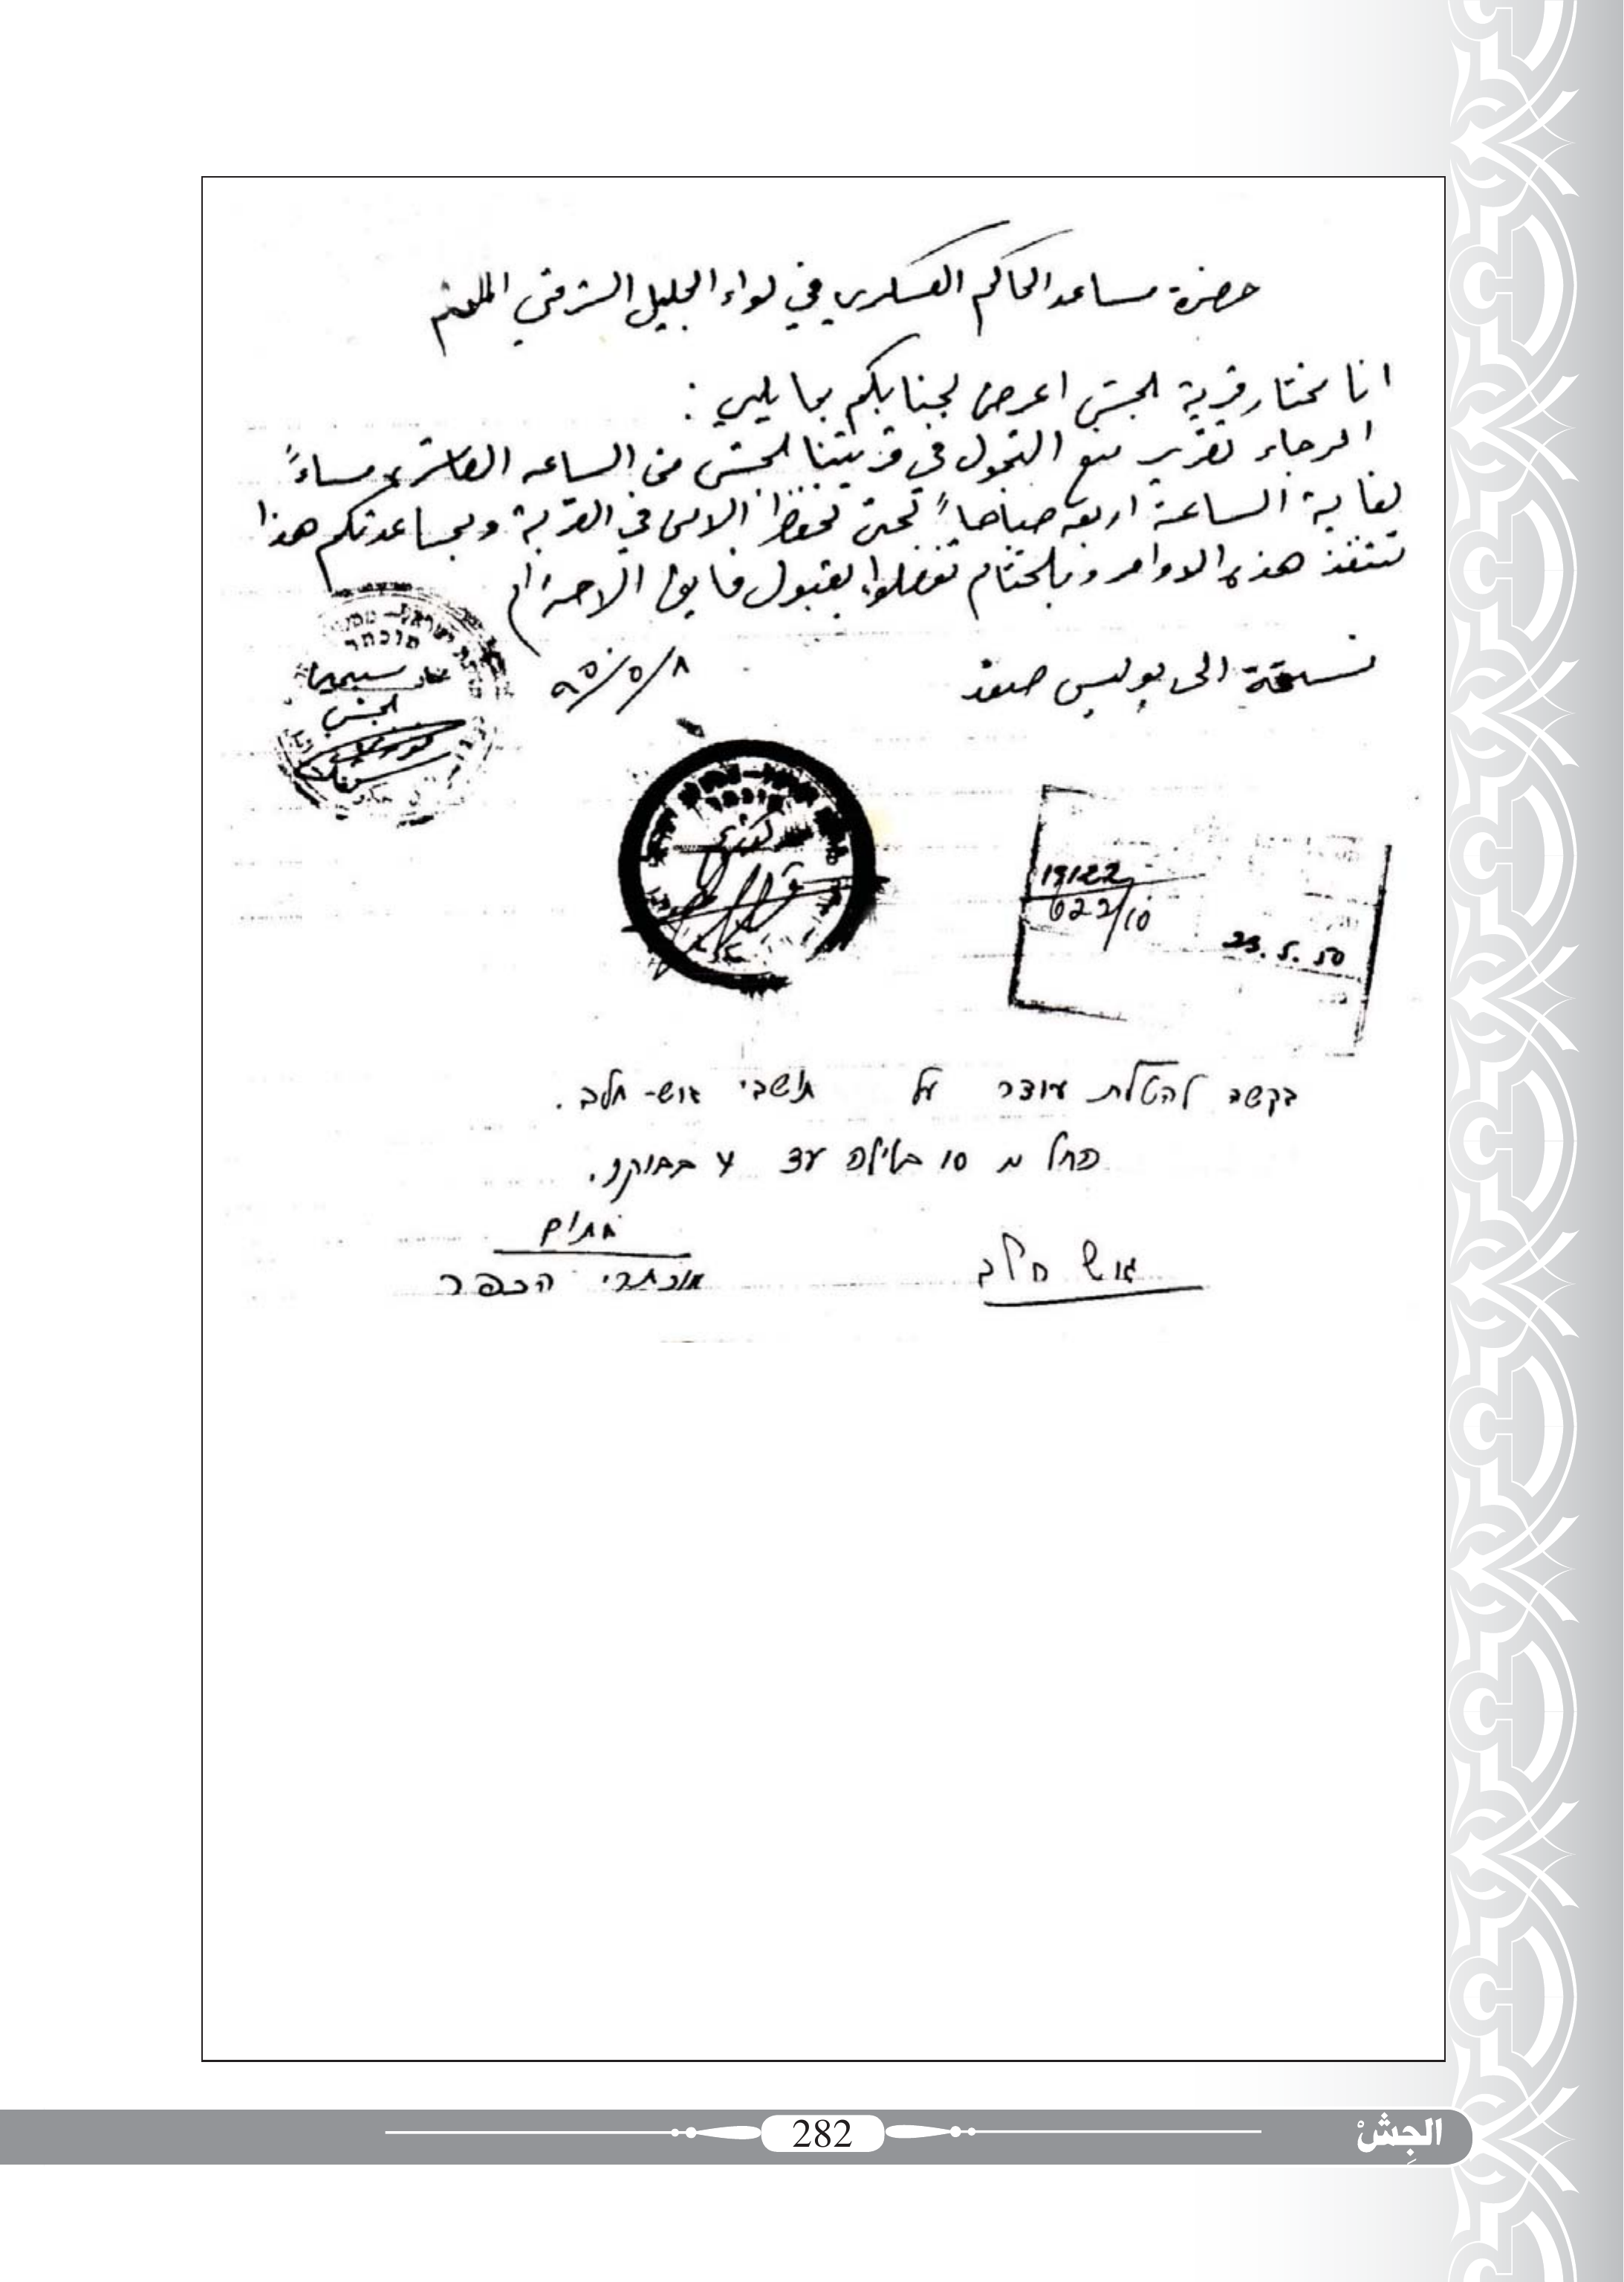 حضرة مساعد الحاكم العسكري في لواء الجليل الشرقي
انا مختار قرية الجش اعرض لجنابكم بما يلي :
الرجاء تقرير منع التجول في قريتنا الجش من الساعه العاشره مساءً
لغاية الساعة اربعه صباحاً حتى تحفظ الامن في القرية وبمساعدتكم هذا
تتنفذ هذه الاوامر وبلختام تفضلوا بقبول فايق الاحترام
نسخة الى بوليس صفد
٨/٥/٩٥٠
מוכתר
الجش
19122
622/10
23.5.50
בקשה להטלת עוצר על תושבי גוש-חלב.
החל מ 10 בלילה עד 4 בבוקר.
חתום
גוש חלב
מוכתרי הכפר
282
الجِشْ